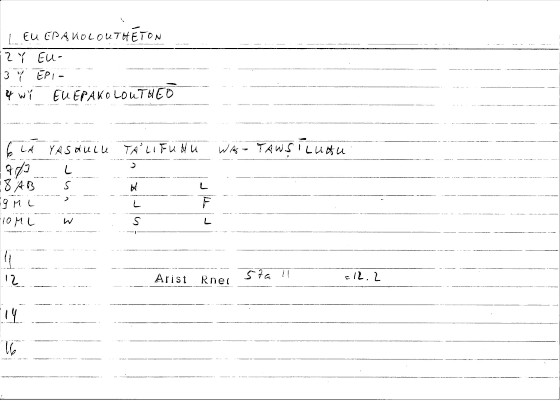 1 EU EPAKOLOUTHĒTON
2 Y EU-
3 Y EPI-
4 WY EUEPAKOLOUTHEŌ
6 LĀ YASHULU TA'LĪFUHU WA-TAWṢĪLUHU
L '
8 AB S H L
9 ML ' L F
10 ML W S L
11
12 Arist Rhet 57a 11 =12.2
14
16